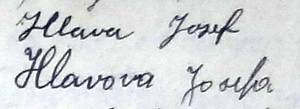 Hlava Josef
Hlavova Josefa